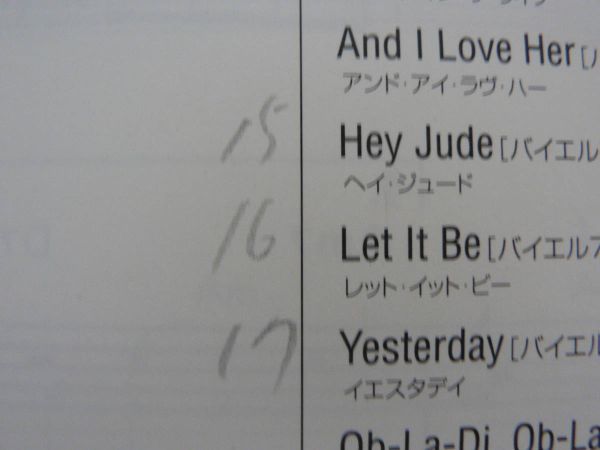 And I Love Her [バ
アンド・アイ・ラヴ・ハー
15
Hey Jude [バイエル
ヘイ・ジュード
16
Let It Be [バイエル
レット・イット・ビー
17
Yesterday [バイエル
イエスタデイ
Ob-La-Di, Ob-La